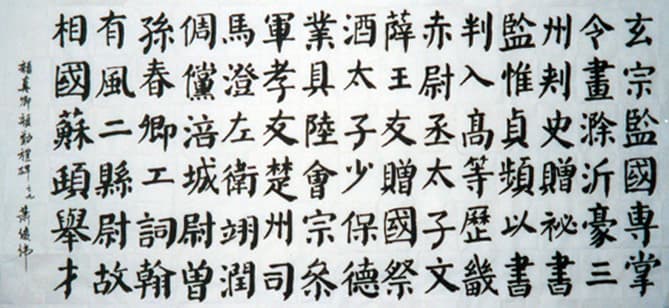 玄宗監國專掌
令畫滁沂豪三
州刾史贈祕書
監惟貞頻以書
判入髙等歷畿
赤尉丞太子文
薛王友贈國祭
酒太子少保德
業具陸會宗叅
軍孝友楚州司
馬澄左衛翊潤
倜儻涪城尉曾
孫春卿工詞翰
有風二縣尉故
相國蘇頲舉才
顏真卿顏勤禮碑